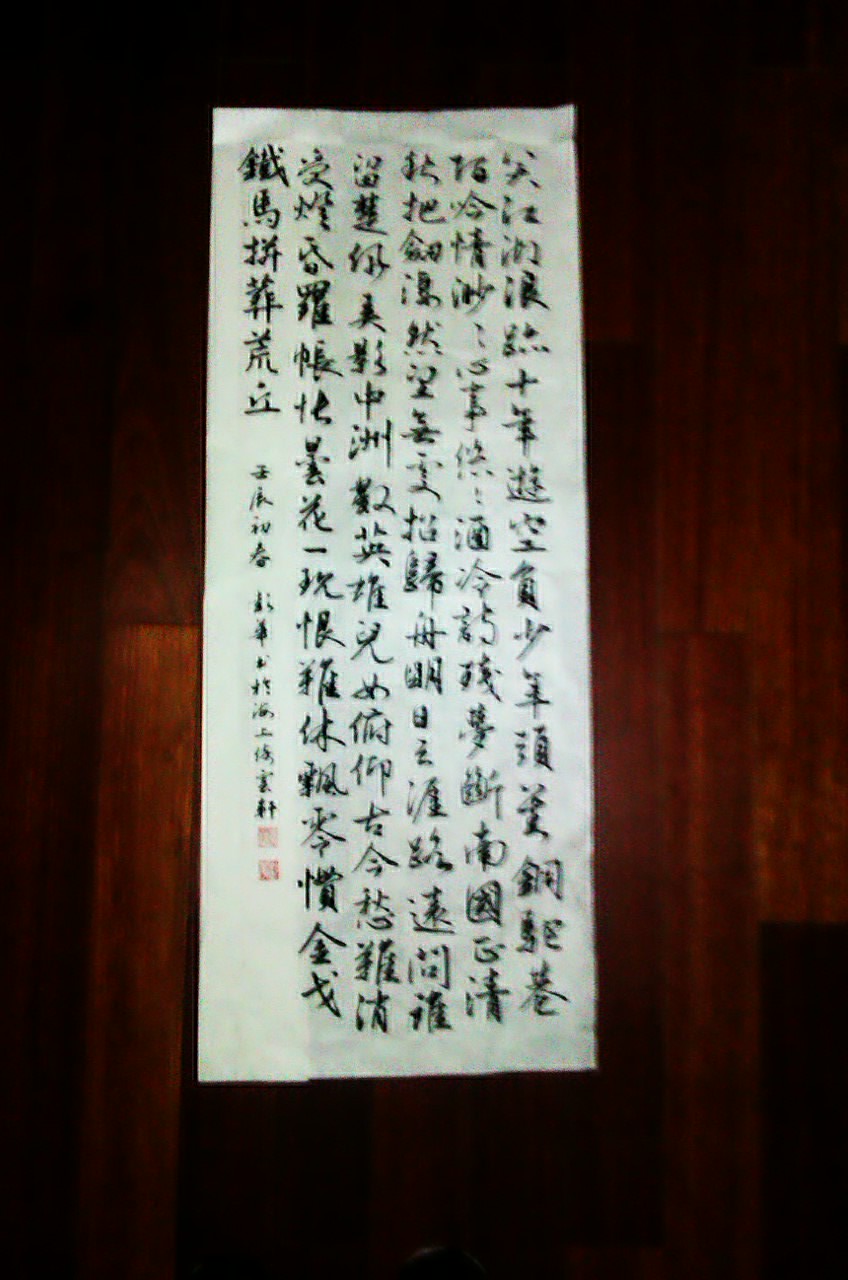 笑江湖浪跡十年遊空負少年頭對銅駝巷
陌吟情渺々心事悠々酒冷詩殘夢斷南國正清
秋把劍淒然望無處招歸舟明日天涯路遠問誰
留楚佩弄影中洲數英雄兒女俯仰古今愁難消
受燈昏羅帳悵曇花一現恨難休飄零慣金戈
鐵馬拼葬荒丘
壬辰初春 華書於海上倚雲軒